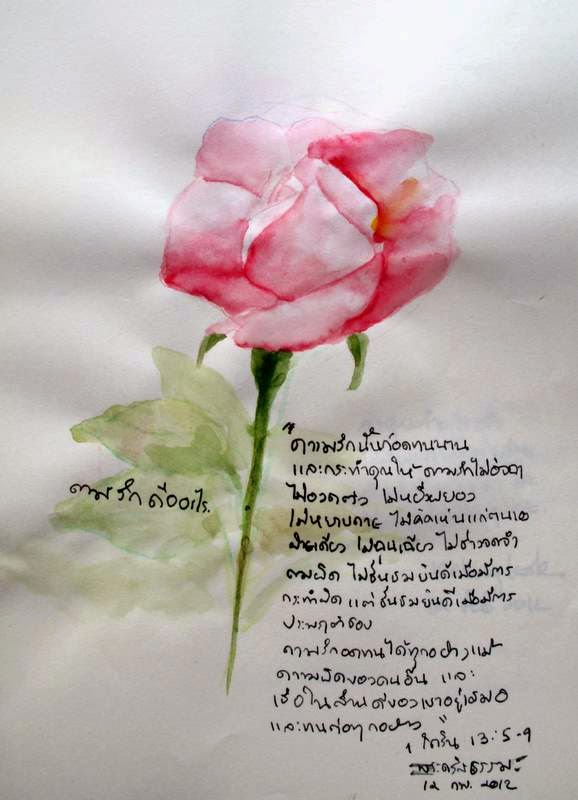 ความรัก คืออะไร.
"ความรักนั้นก็อดทนนาน
และกระทำคุณให้ ความรักไม่อิจฉา
ไม่อวดตัว ไม่หยิ่งผยอง
ไม่หยาบคาย ไม่คิดเห็นแก่ตนเอง
ฝ่ายเดียว ไม่ฉุนเฉียว ไม่ช่างจดจำ
ความผิด ไม่ชื่นชมยินดีเมื่อมีการ
กระทำผิด แต่ชื่นชมยินดีเมื่อมีการ
ประพฤติชอบ
ความรักอดทนได้ทุกอย่างแม้
ความผิดของคนอื่น และ
เชื่อในส่วนดีของเขาอยู่เสมอ
และทนต่อทุกอย่าง"
1 โครินธ์ 13:5-9
12 กพ. 2012